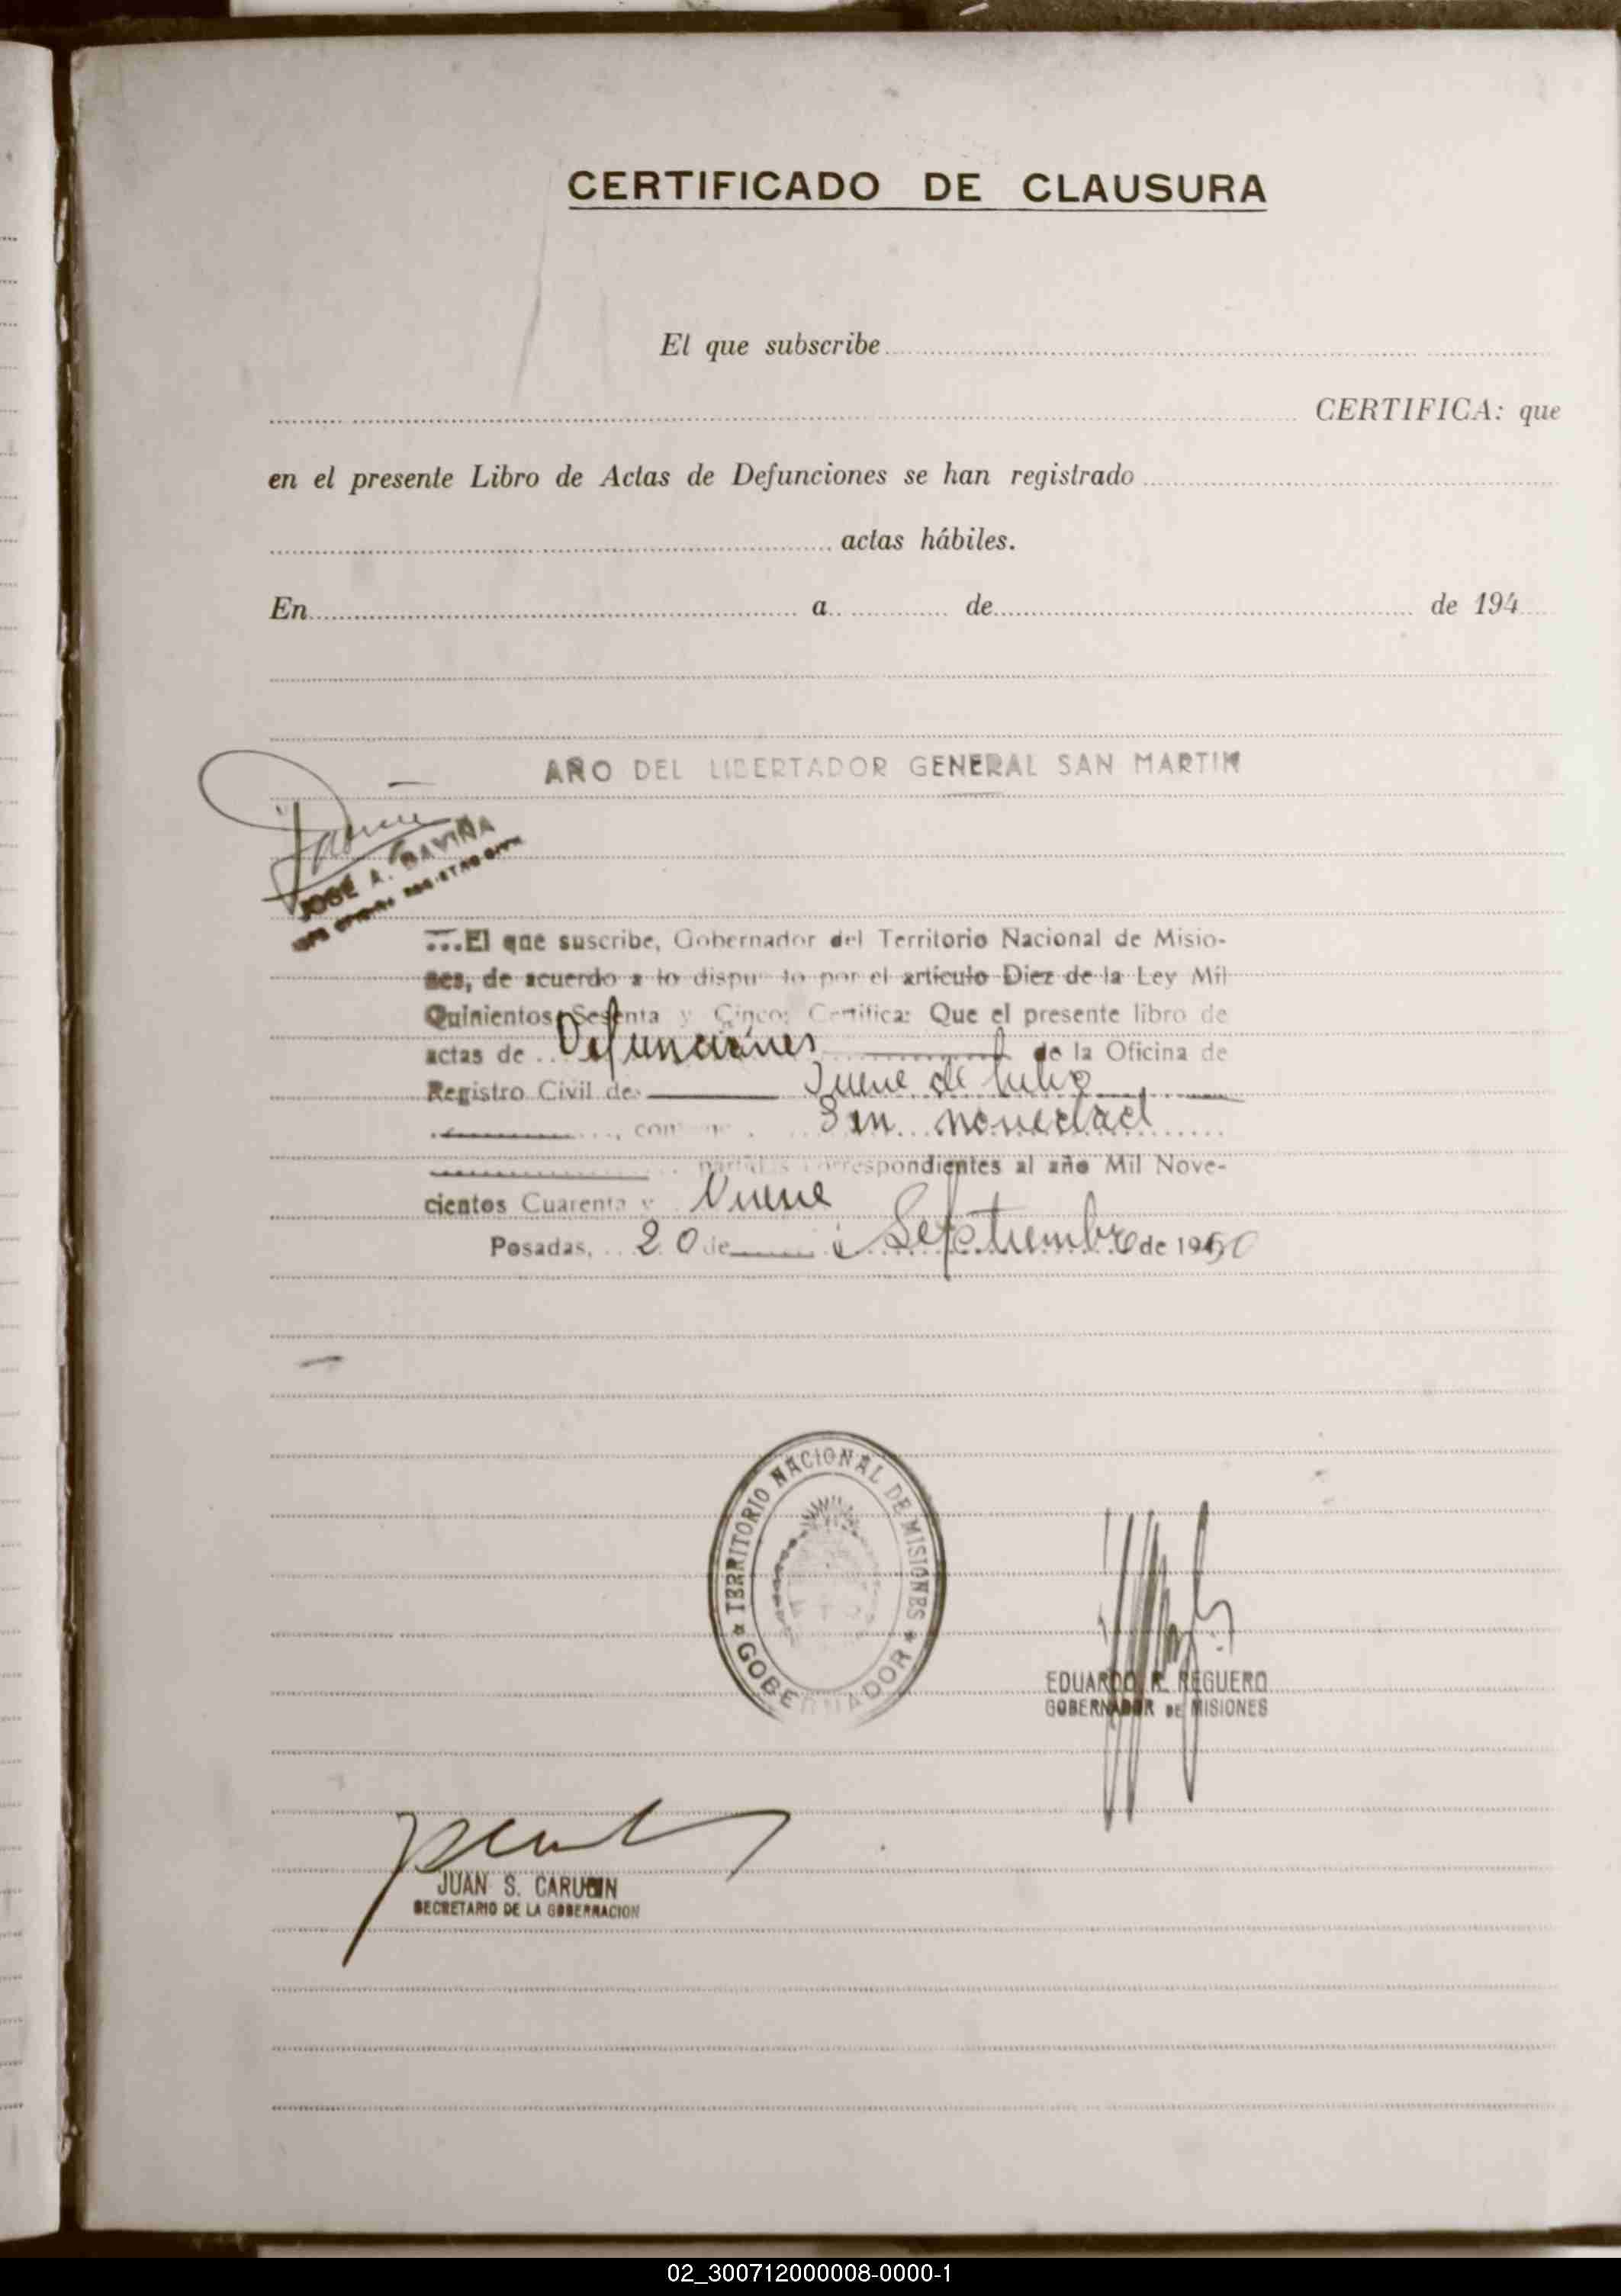 CERTIFICADO DE CLAUSURA
El que subscribe
CERTIFICA: que
en el presente Libro de Actas de Defunciones se han registrado
actas hábiles.
En a de de 194
AÑO DEL LIBERTADOR GENERAL SAN MARTIN
JOSÉ A. GAVIÑA
...El que suscribe, Gobernador del Territorio Nacional de Misio-
nes, de acuerdo a lo dispuesto por el artículo Diez de la Ley Mil
Quinientos Sesenta y Cinco; Certifica: Que el presente libro de
actas de Defunciones de la Oficina de
Registro Civil de Nueve de Julio
, contiene Sin novedad
partidas correspondientes al año Mil Nove-
cientos Cuarenta y Nueve
Posadas, 20 de Septiembre de 1950
TERRITORIO NACIONAL DE MISIONES
GOBERNADOR
EDUARDO R. REGUERO
GOBERNADOR DE MISIONES
JUAN S. CARUBIN
SECRETARIO DE LA GOBERNACION
02_300712000008-0000-1